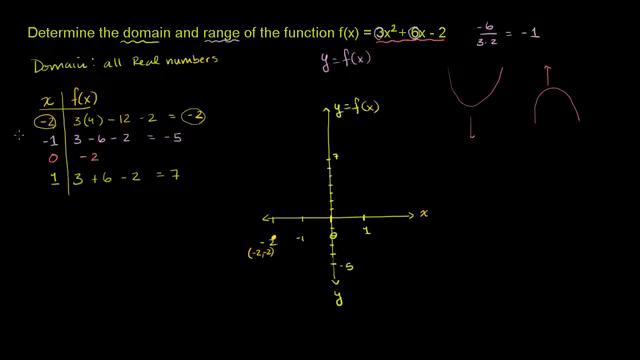 Determine the domain and range of the function f(x) = 3x² + 6x - 2
-6 / 3·2 = -1
Domain: all Real numbers
y = f(x)
x f(x)
-2 3(4) - 12 - 2 = -2
-1 3 - 6 - 2 = -5
0 -2
1 3 + 6 - 2 = 7
y = f(x)
7
x
-2 -1 0 1
(-2,-2)
-5
y